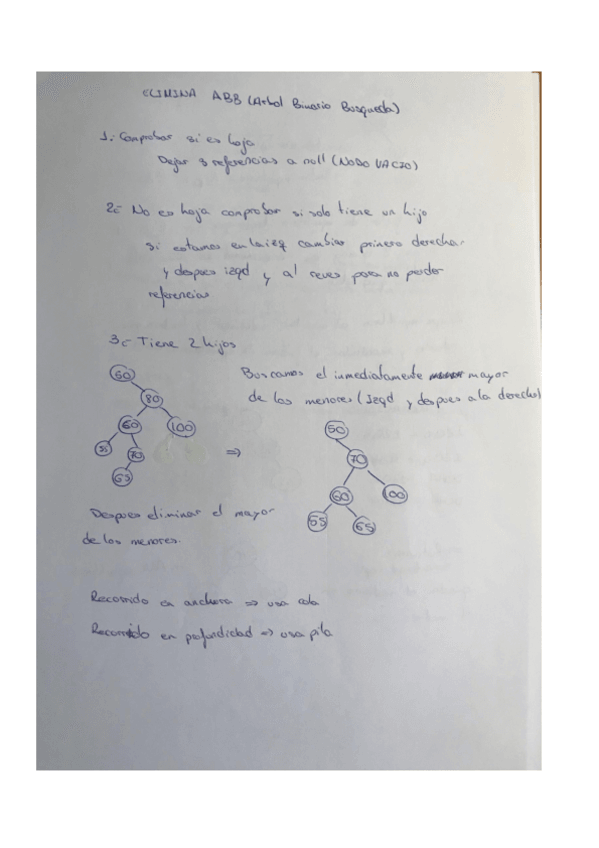 ELIMINA ABB (Arbol Binario Busqueda)
1.- Comprobar si es hoja
Dejar 3 referencias a null (NODO VACIO)
2.- No es hoja comprobar si solo tiene un hijo
si estamos en la izq cambias primero derecha
y despues izqd y al reves para no perder
referencias
3.- Tiene 2 hijos
Buscamos el inmediatamente mayor
de los menores (Izqd y despues a la derecha)
50
80
60 100
55 70
65
=>
50
70
60 100
55 65
Despues eliminar el mayor
de los menores.
Recorrido en anchura => usa cola
Recorrido en profundidad => usa pila